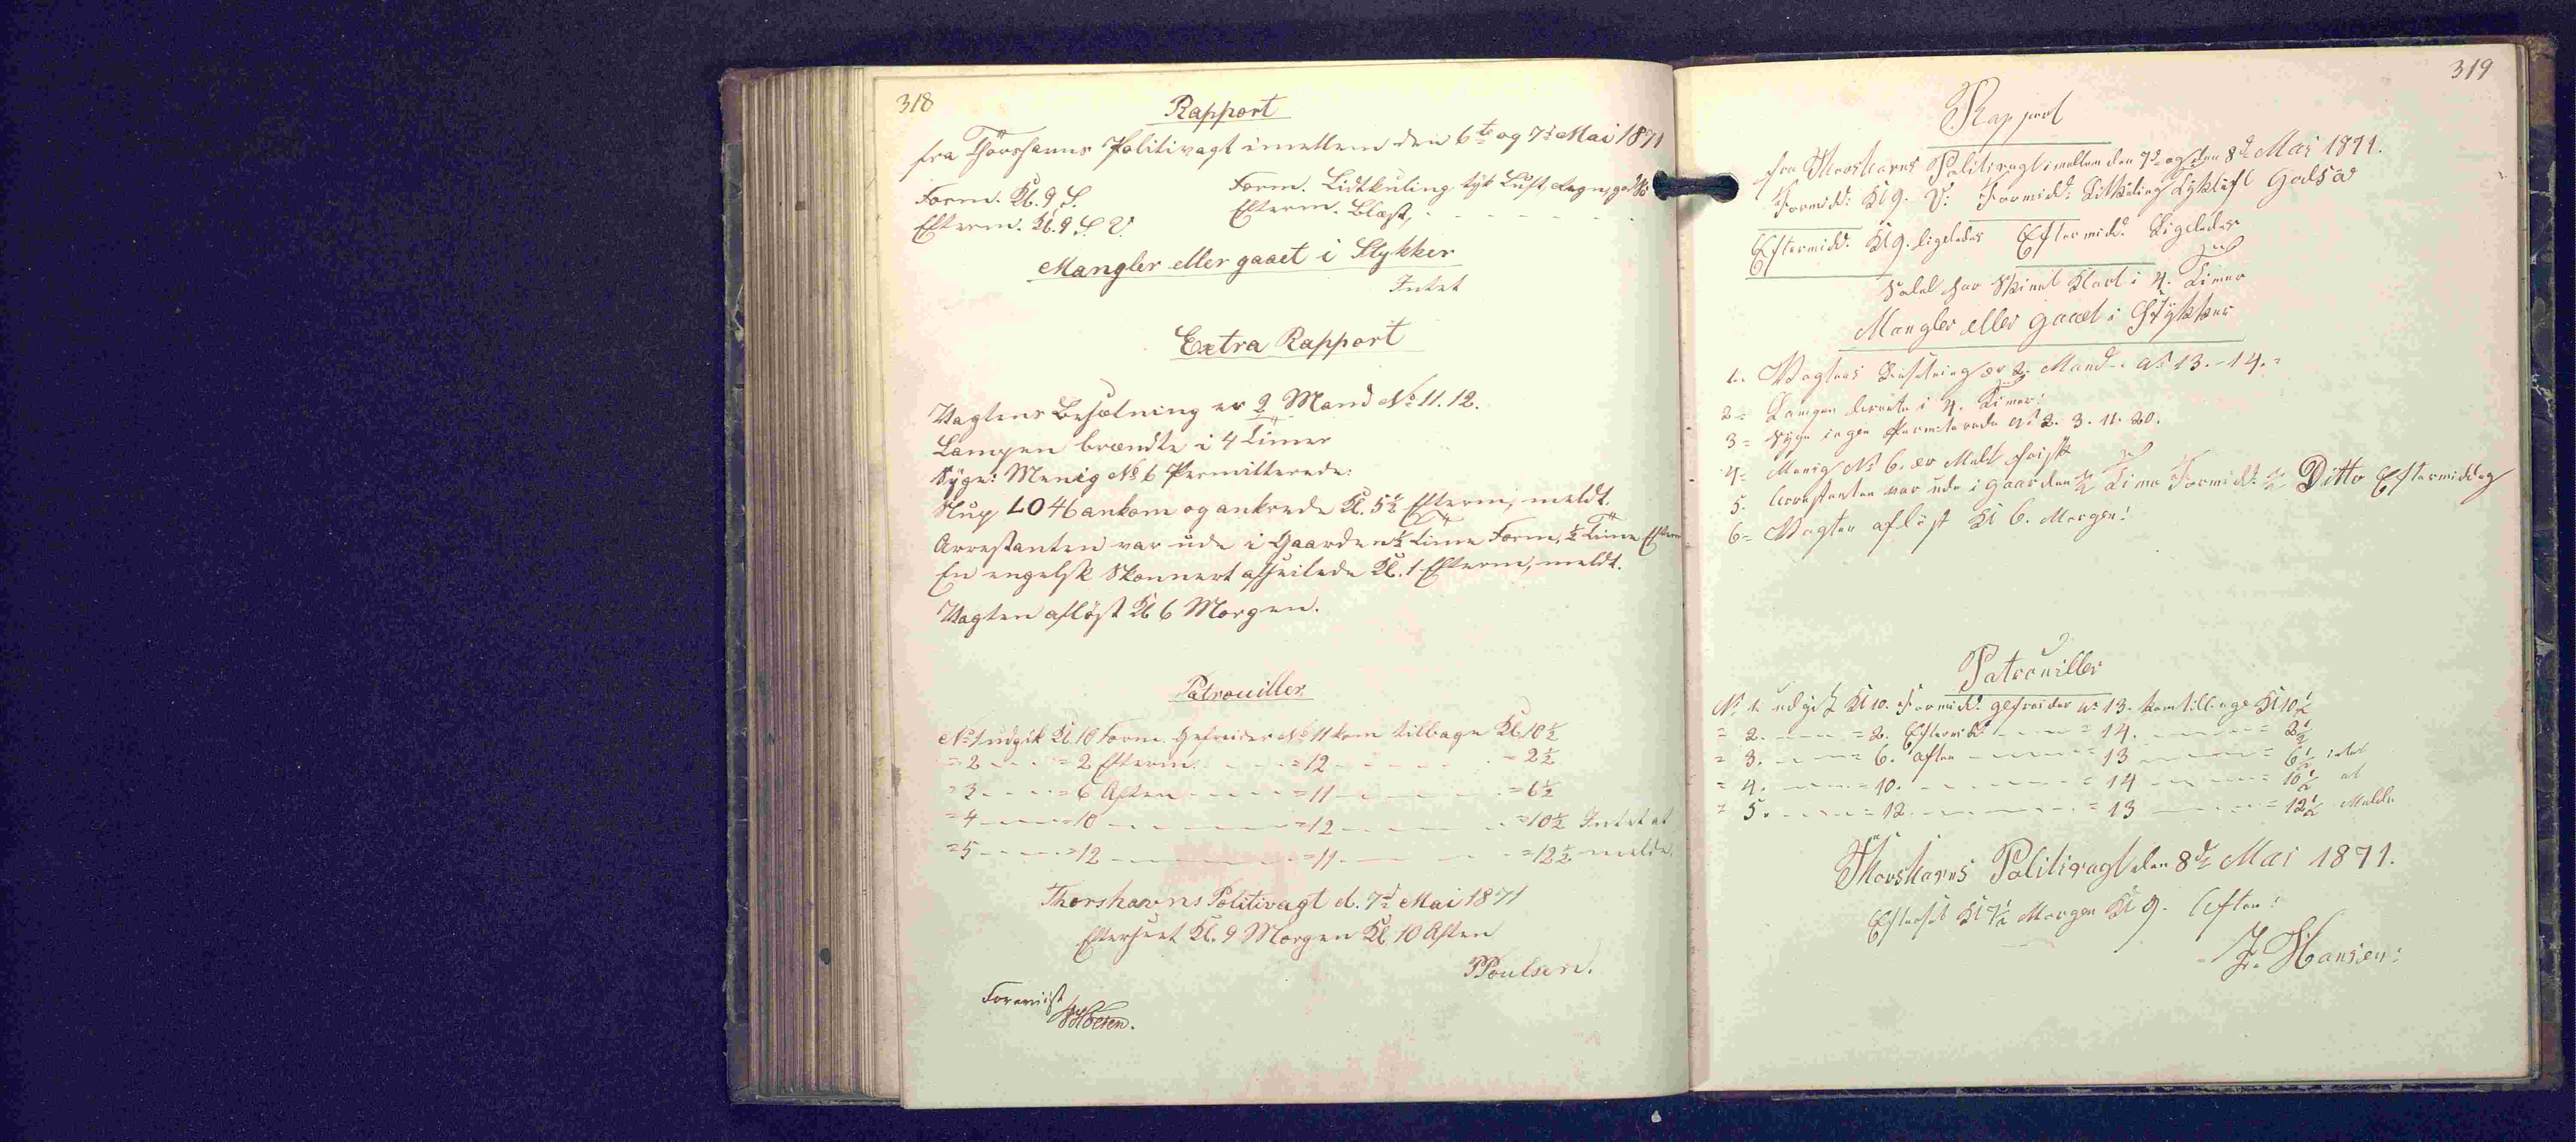 318
Rapport
fra Thorshavns Politivagt imellem den 6te og 7d Mai 1871
Form. Kl. 9 S. Form. Lidtkuling tyk Luft, Regn, god Sö
Efterm. Kl. 9 S. V. Efterm. Blæst, - - - - - -
Mangler eller gaaet i Stykker
Intet
Extra Rapport
Vagtens Besætning er 2 Mand No 11. 12.
Lampen brændte i 4 Timer
Syge: Menig No 6 Permitterede:
Slup LO 46 ankom og ankrede Kl. 5½ Efterm, meldt.
Arrestanten var ude i Gaarden ½ Time Form, ½ Time Efterm
En engelsk Skonnert afseilede Kl. 1 Efterm, meldt.
Vagten aflöst Kl 6 Morgen.
Patrouiller
No 1 udgik Kl. 10 Form. Gefreider No 11 kom tilbage Kl. 10½
= 2 - - - = 2 Efterm. - - - = 12 - - - - = 2½
= 3 - - - = 6 Aften - - - = 11 - - - - = 6½
= 4 - - - = 10 - - - - = 12 - - - - = 10½ Intet at
= 5 - - - = 12 - - - - = 11 - - - - = 12½ melde.
Thorshavns Politivagt d. 7d Mai 1871
Efterseet Kl. 9 Morgen Kl. 10 Aften
PPoulsen.
Foreviist
319
Rapport
fra Thorshavns Politivagt imellem den 7d og den 8d Mai 1871.
Formidd: Kl 9. V: Formidd: Litkuling Tykluft Godsö
Eftermidd. Kl 9. ligeledes Eftermidd. Ligeledes
Solel har Skinet Klart i 4. Timer
Mangler eller gaaet i Stykker
1. Vagtens Besetning er 2 Mand. No 13.-14.=
2= Lampen brente i 4. Timer!
3= Syge ingen Permiterede No 2. 3. 11. 20.
4= Menig No 6. er Melt frisk
5. Arrestanten var ude i Gaarden ½ Time Formidd: ½ Ditto Eftermiddag
6= Vagten aflöst Kl 6. Morgen!
Patrouiller
No 1. udgik Kl 10. Formidd. gefreider No 13. kom tilbage Kl 10½
= 2. - - - = 2. Eftermid - - - = 14. - - - = 2½
= 3. - - - = 6. aften - - - = 13 - - - = 6½ intet
= 4. - - - = 10. - - - - = 14 - - - = 10½ at
= 5. - - - = 12. - - - - = 13 - - - = 12½ Melde
Thorshavns Politivagt den 8d Mai 1871.
Efterset Kl 7½ Morgen Kl 9. Aften!
J. Hansen: